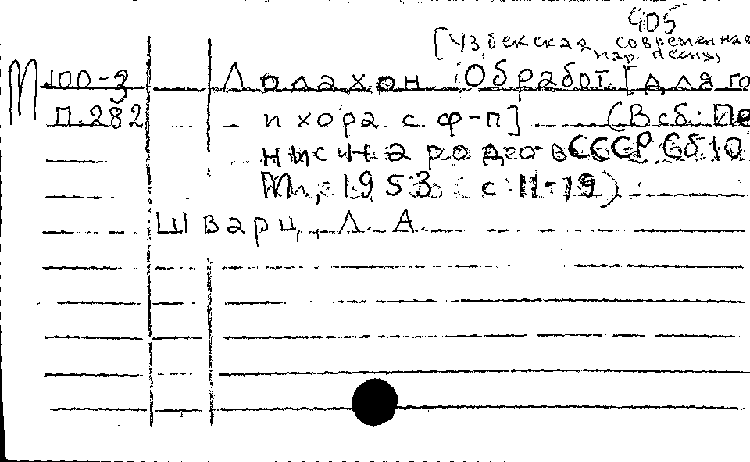 905
[Узбекская современная
нар. песня]
М 100-3 Лолахон Обработ. [для го
П.282 и хора с ф-п] (В сб: Пе
ни народов СССР Сб 10
М., 1953 с 11-19)
Шварц, Л. А.